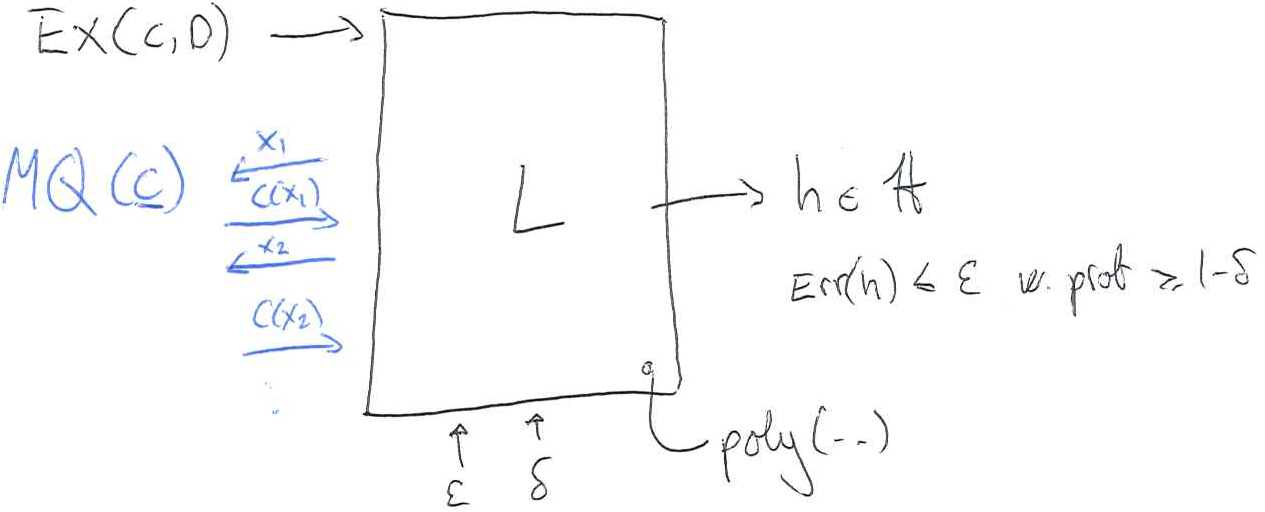 EX(C,D)
MQ(C)
x1
C(x1)
x2
C(x2)
L
h ∈ H
Err(h) ≤ ε w. prob ≥ 1-δ
poly(--)
ε δ